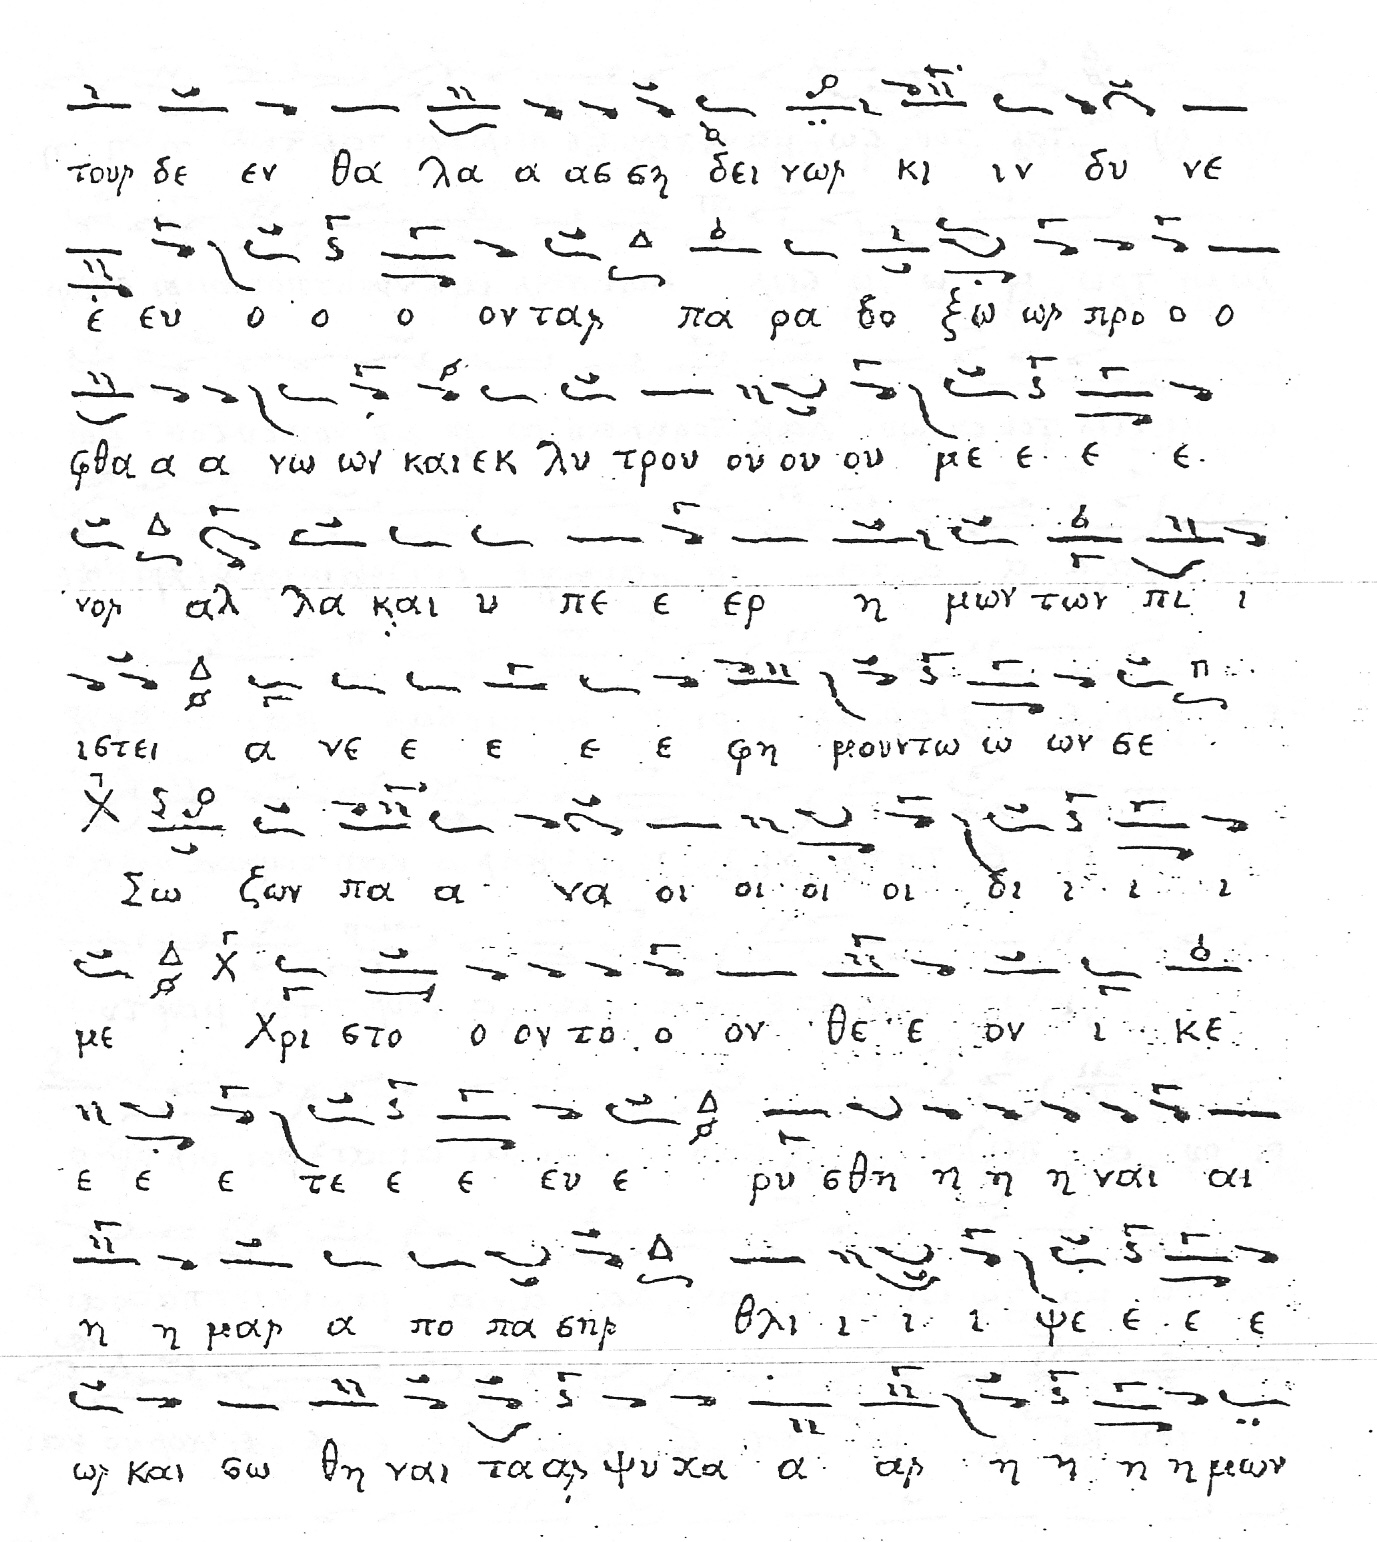 τους δε εν θα λα α ας ση δει νως κι ιν δυ νε
ε ευ ο ο ο ον τας πα ρα δο ξω ως προ ο ο
φθα α α νω ων και εκ λυ τρου ου ου ου με ε ε ε
νος αλ λα και υ πε ε ερ η μων των πι ι
ιστει α νε ε ε ε ε φη μουντω ω ων σε
Σω ζων πα α να οι οι οι οι δι ι ι ι
με Χρι στο ο ον το ο ον θε ε ον ι κε
ε ε ε τε ε ε ευ ε ρυ σθη η η η ναι αι
η η μας α πο πα σης θλι ι ι ι ψε ε ε ε
ως και σω θη ναι τα ας ψυ χα α ας η η η η μων